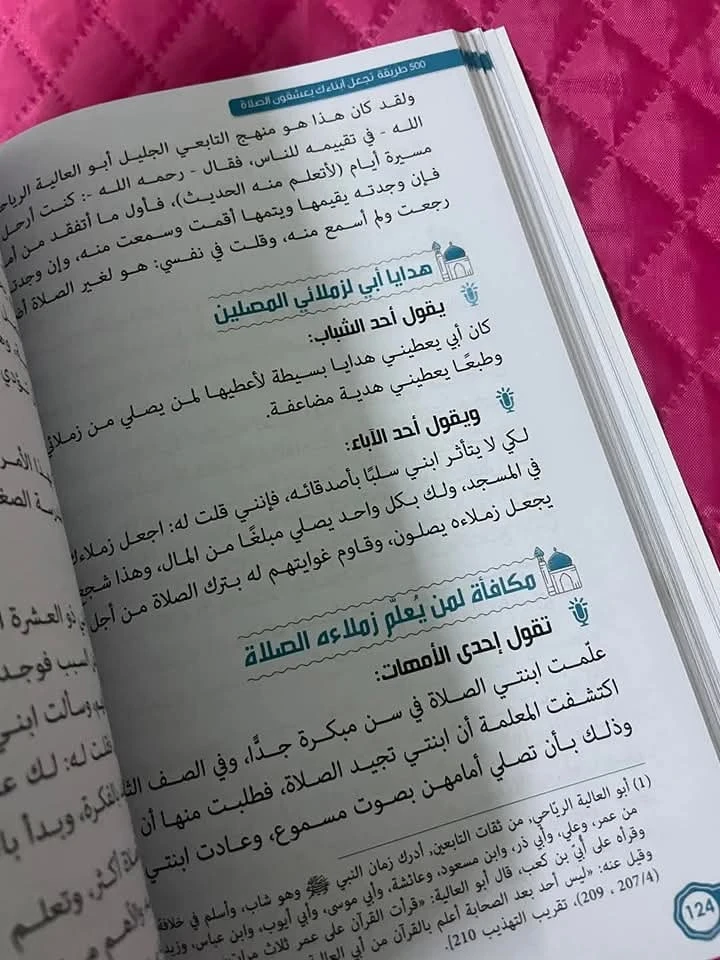 500 طريقة تجعل ابناءك يعشقون الصلاة
ولقد كان هذا هو منهج التابعي الجليل أبو العالية
الله - في تقييمه للناس، فقال - رحمه الله -: كنت أرحل
مسيرة أيام (لأتعلم منه الحديث)، فأول ما أتفقد من
فإن وجدته يقيمها ويتمها أقمت وسمعت منه، وإن
رجعت ولم أسمع منه، وقلت في نفسي: هو لغير الصلاة
هدايا أبي لزملائي المصلين
يقول أحد الشباب:
كان أبي يعطيني هدايا بسيطة لأعطيها لمن يصلي من زملائي
وطبعًا يعطيني هدية مضاعفة.
ويقول أحد الآباء:
لكي لا يتأثر ابني سلبًا بأصدقائه، فإنني قلت له: اجعل
في المسجد، ولك بكل واحد يصلي مبلغًا من المال، وهذا
يجعل زملاءه يصلون، وقاوم غوايتهم له بترك الصلاة من أجل
مكافأة لمن يُعلّم زملاءه الصلاة
تقول إحدى الأمهات:
علّمت ابنتي الصلاة في سن مبكرة جدًّا، وفي الصف
اكتشفت المعلمة أن ابنتي تجيد الصلاة، فطلبت منها أن
وذلك بأن تصلي أمامهن بصوت مسموع، وعادت ابنتي
(1) أبو العالية الرياحي، من ثقات التابعين، أدرك زمان النبي ﷺ وهو شاب، وأسلم في خلافة
من عمر، وعلي، وأبي ذر، وابن مسعود، وعائشة، وأبي موسى، وأبي أيوب، وابن عباس، وزيد
وقرأه على أبي بن كعب، قال أبو العالية: «قرأت القرآن على عمر ثلاث
وقيل عنه: «ليس أحد بعد الصحابة أعلم بالقرآن من أبي
(207/4 ، 209)، تقريب التهذيب 210].
124
ذو العشرة
السبب فوجد
وسألت ابني
قلت له: لك
الفكرة، وبدأ
أكثر، وتعلم